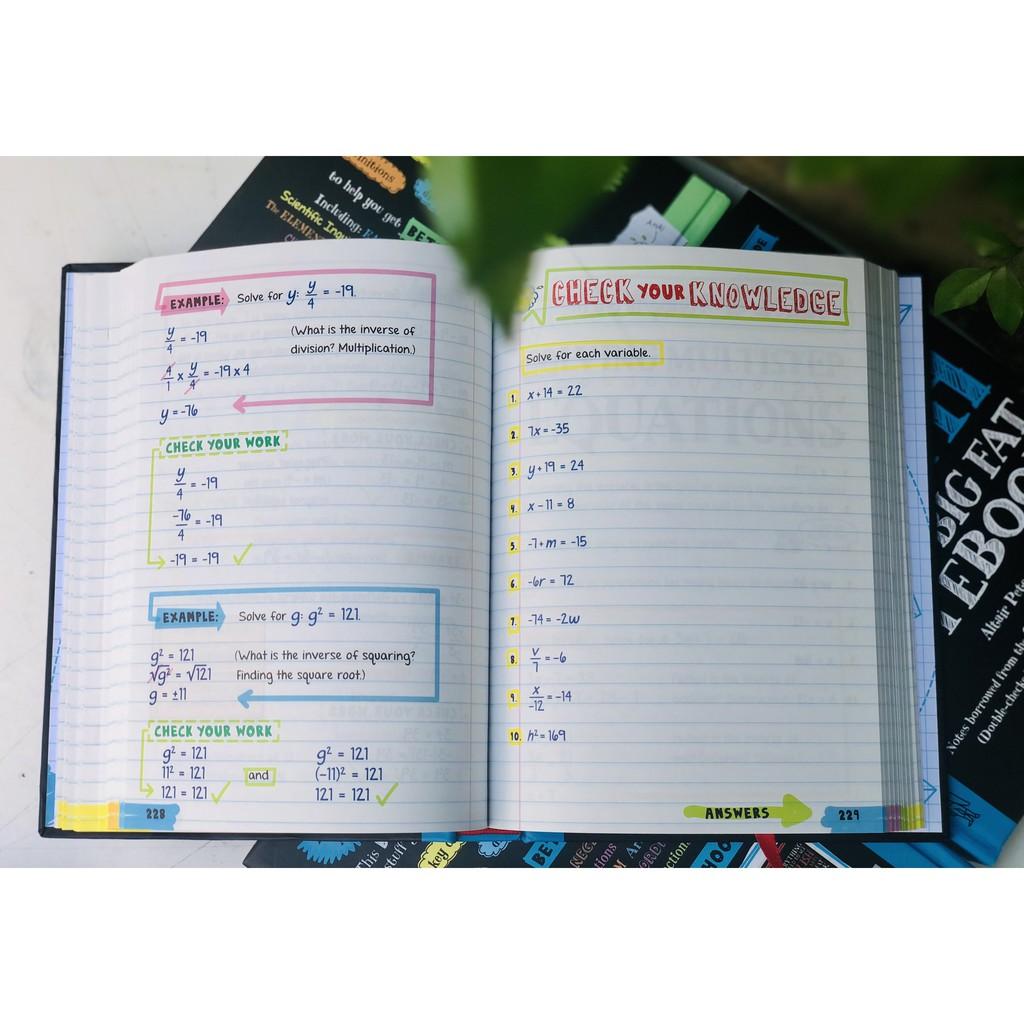 initions
to help you get
BET
Including:
Scientific Inqu
The ELEMEN
EXAMPLE: Solve for y: y/4 = -19.
y/4 = -19
(What is the inverse of
division? Multiplication.)
4/1 x y/4 = -19 x 4
y = -76
CHECK YOUR WORK
y/4 = -19
-76/4 = -19
-19 = -19 ✓
EXAMPLE: Solve for g: g² = 121.
g² = 121
(What is the inverse of squaring?
√g² = √121
Finding the square root.)
g = ±11
CHECK YOUR WORK
g² = 121
11² = 121
121 = 121 ✓
and
g² = 121
(-11)² = 121
121 = 121 ✓
228
CHECK YOUR KNOWLEDGE
Solve for each variable.
1. x + 14 = 22
2. 7x = -35
3. y + 19 = 24
4. x - 11 = 8
5. -7 + m = -15
6. -6r = 72
7. -74 = -2w
8. v/7 = -6
9. x/-12 = -14
10. h² = 169
ANSWERS
229
BIG FAT
EBOO
Altair Pete
Notes borrowed from the
(Double-checke
key